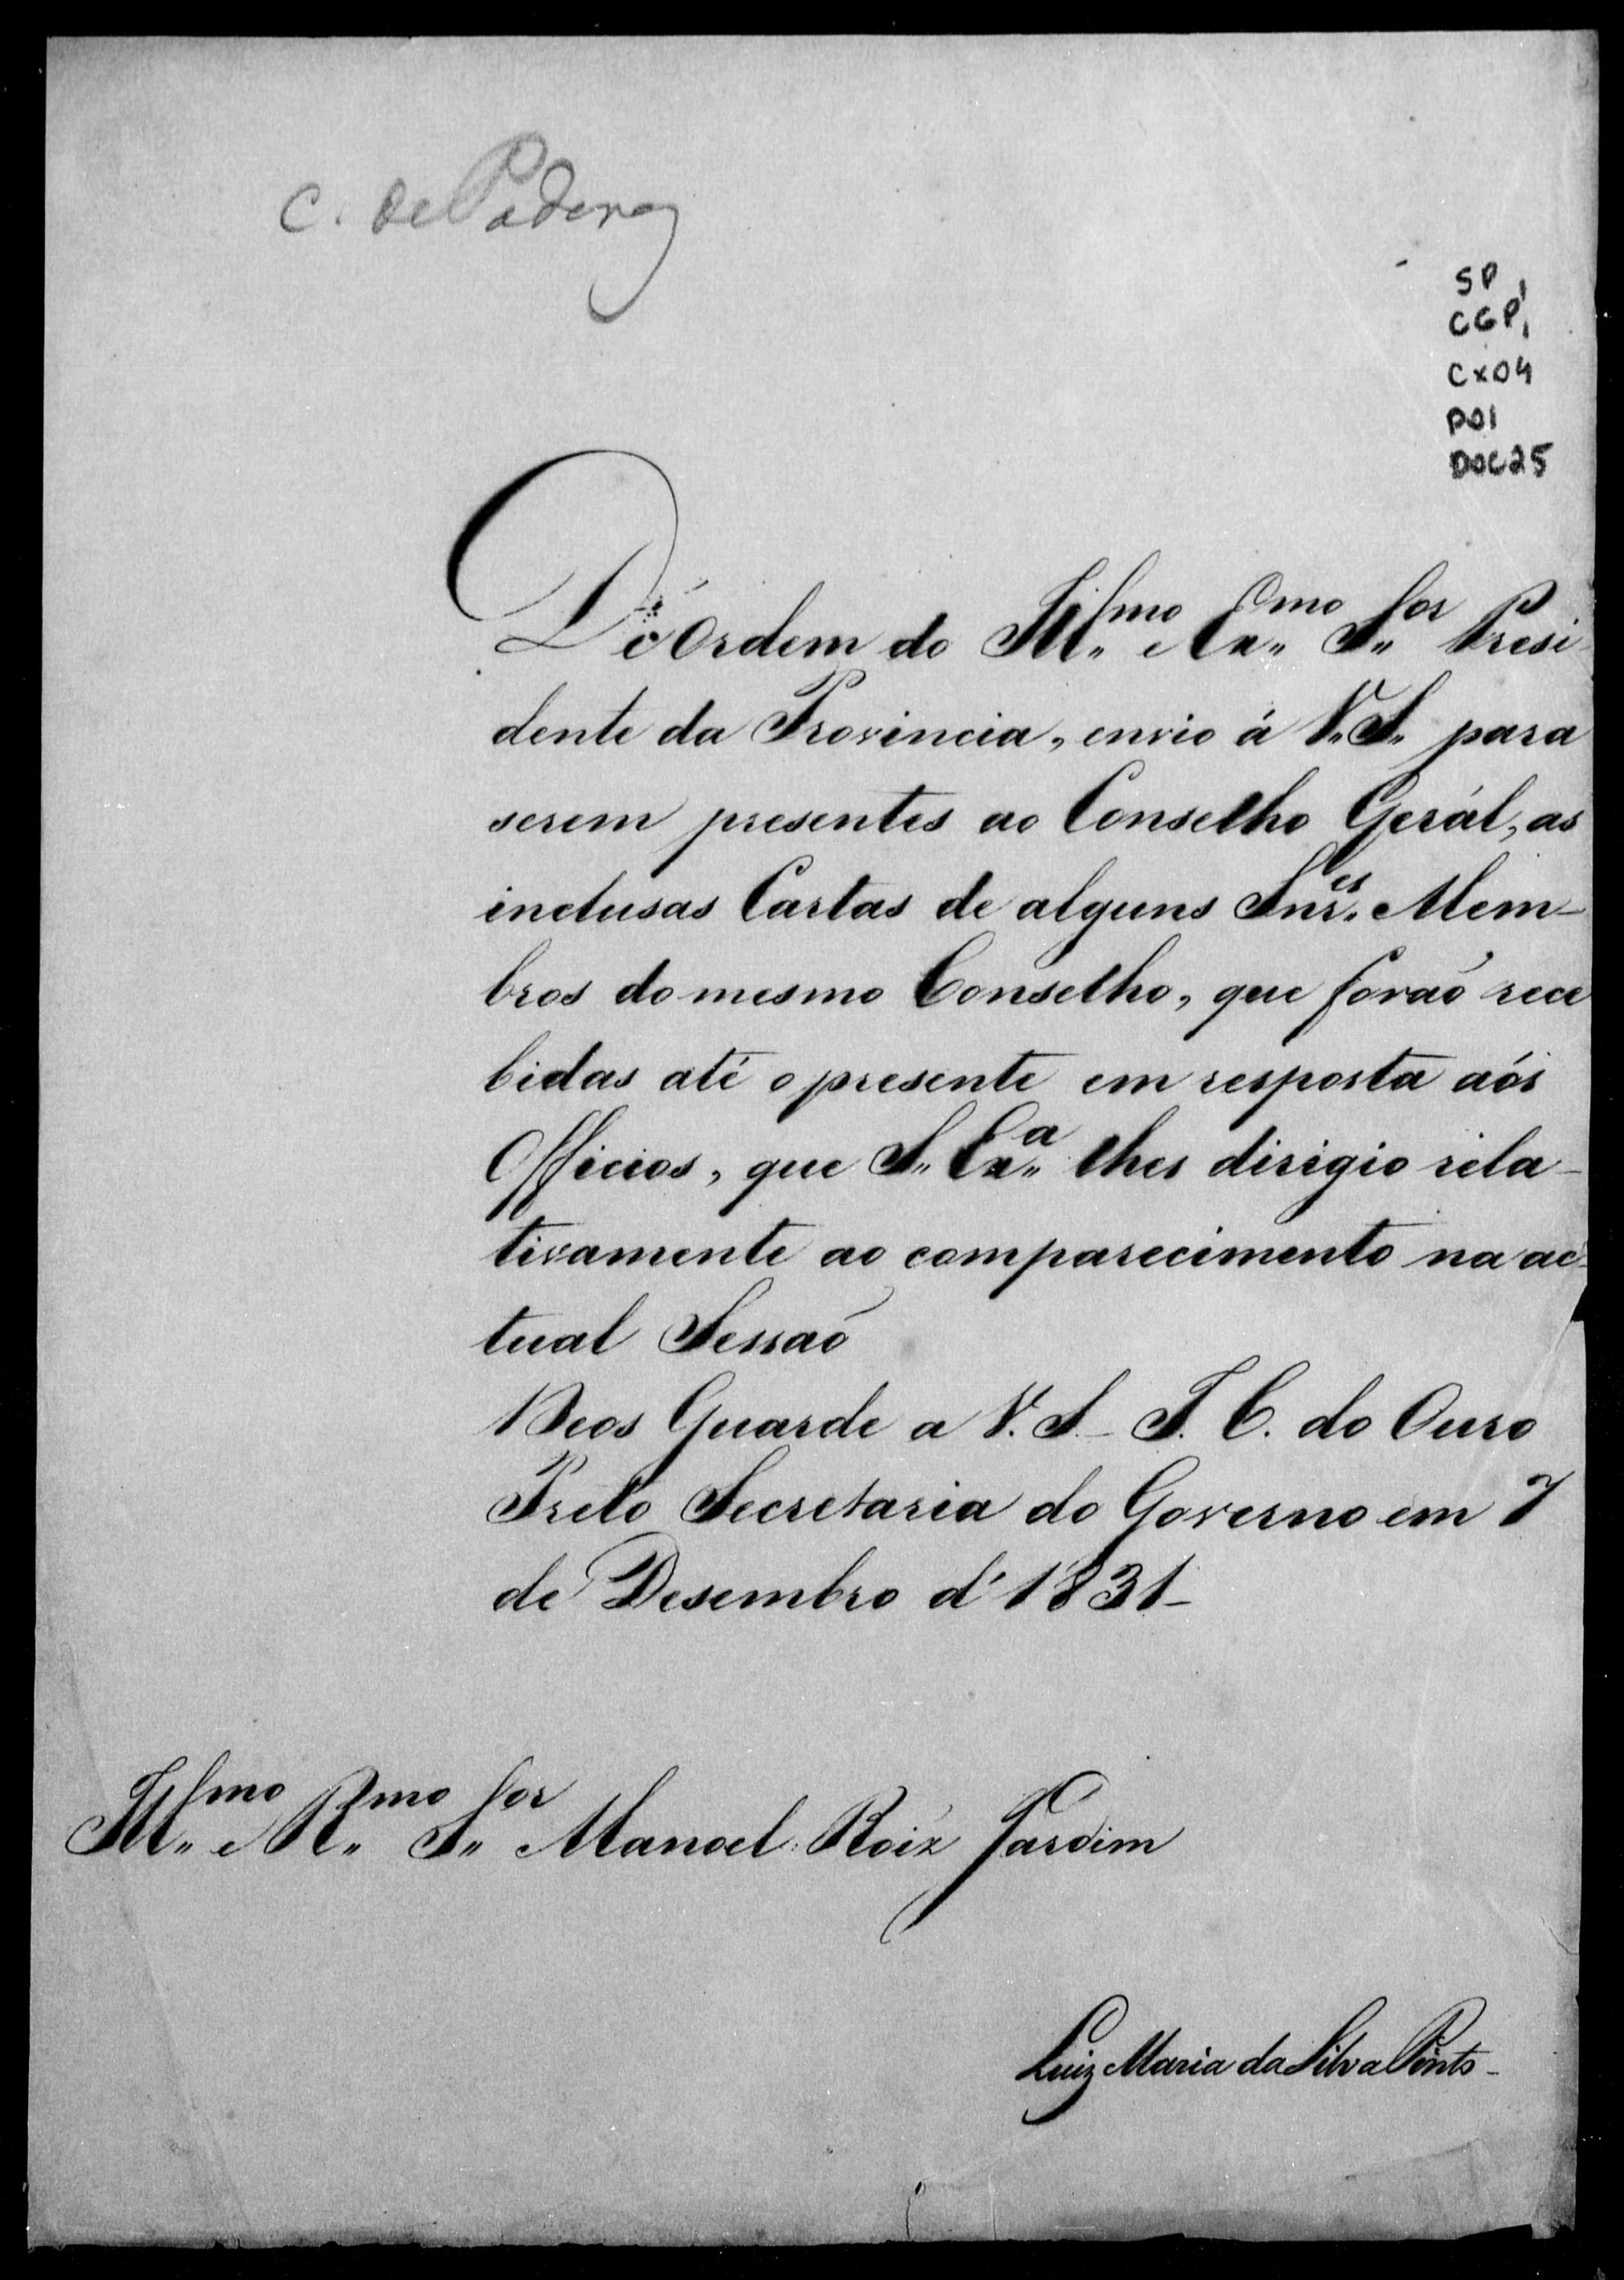 C. de Poderes
SP
CGP1
CX04
P01
DOC25
D'Ordem do Ill.mo e Ex.mo S.or Presi-
dente da Provincia, envio á V. S. para
serem presentes ao Conselho Gerál, as
inclusas Cartas de alguns Snr.es Mem-
bros do mesmo Conselho, que forão rece
bidas até o presente em resposta aós
Officios, que S. Ex.a lhes dirigio rela-
tivamente ao comparecimento na ac-
tual Sessão
Deos Guarde a V. S. I. C. do Ouro
Preto Secretaria do Governo em 7
de Desembro d'1831-
Ill.mo e R.mo S.or Manoel Roiz Jardim
Luiz Maria da Silva Pinto-